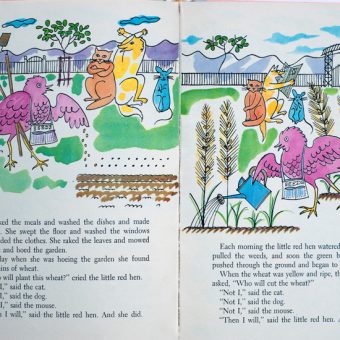 ked the meals and washed the dishes and made
. She swept the floor and washed the windows
ded the clothes. She raked the leaves and mowed
and hoed the garden.
lay when she was hoeing the garden she found
ins of wheat.
o will plant this wheat?" cried the little red hen.
I," said the cat.
I," said the dog.
I," said the mouse.
n I will," said the little red hen. And she did.
Each morning the little red hen watered
pulled the weeds, and soon the green b
pushed through the ground and began to
When the wheat was yellow and ripe, th
asked, "Who will cut the wheat?"
"Not I," said the cat.
"Not I," said the dog.
"Not I," said the mouse.
"Then I will," said the little red hen. An